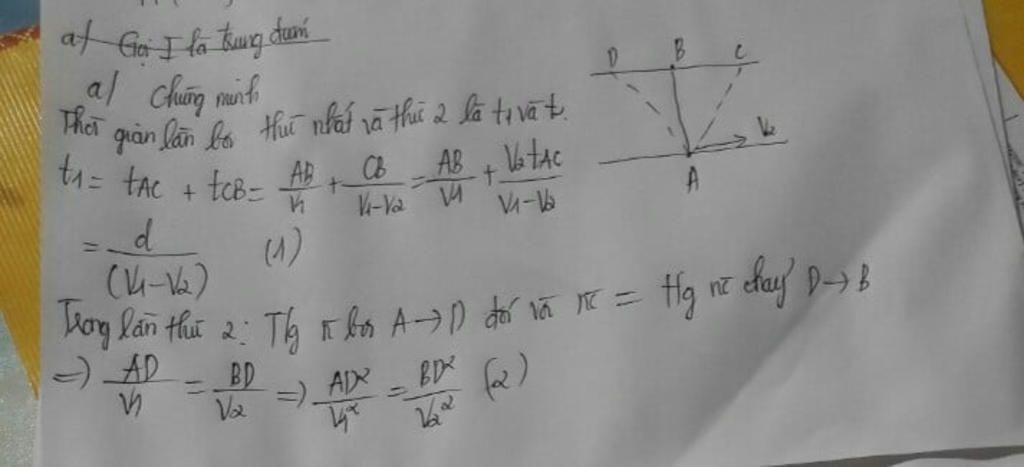 a/ Gọi I là trung điểm
a/ Chứng minh
Thời gian lần bơi thứ nhất và thứ 2 là t1 và t.
t1 = tAC + tCB = AB/V1 + CB/(V1-V2) = AB/V1 + V2tAC/(V1-V2)
= d/(V1-V2) (1)
Trong lần thứ 2: Tg bơi A→D đối = nc chảy D→B
=) AD/V1 = BD/V2 =) AD²/V1² = BD²/V2² (2)
D B C
V2
A